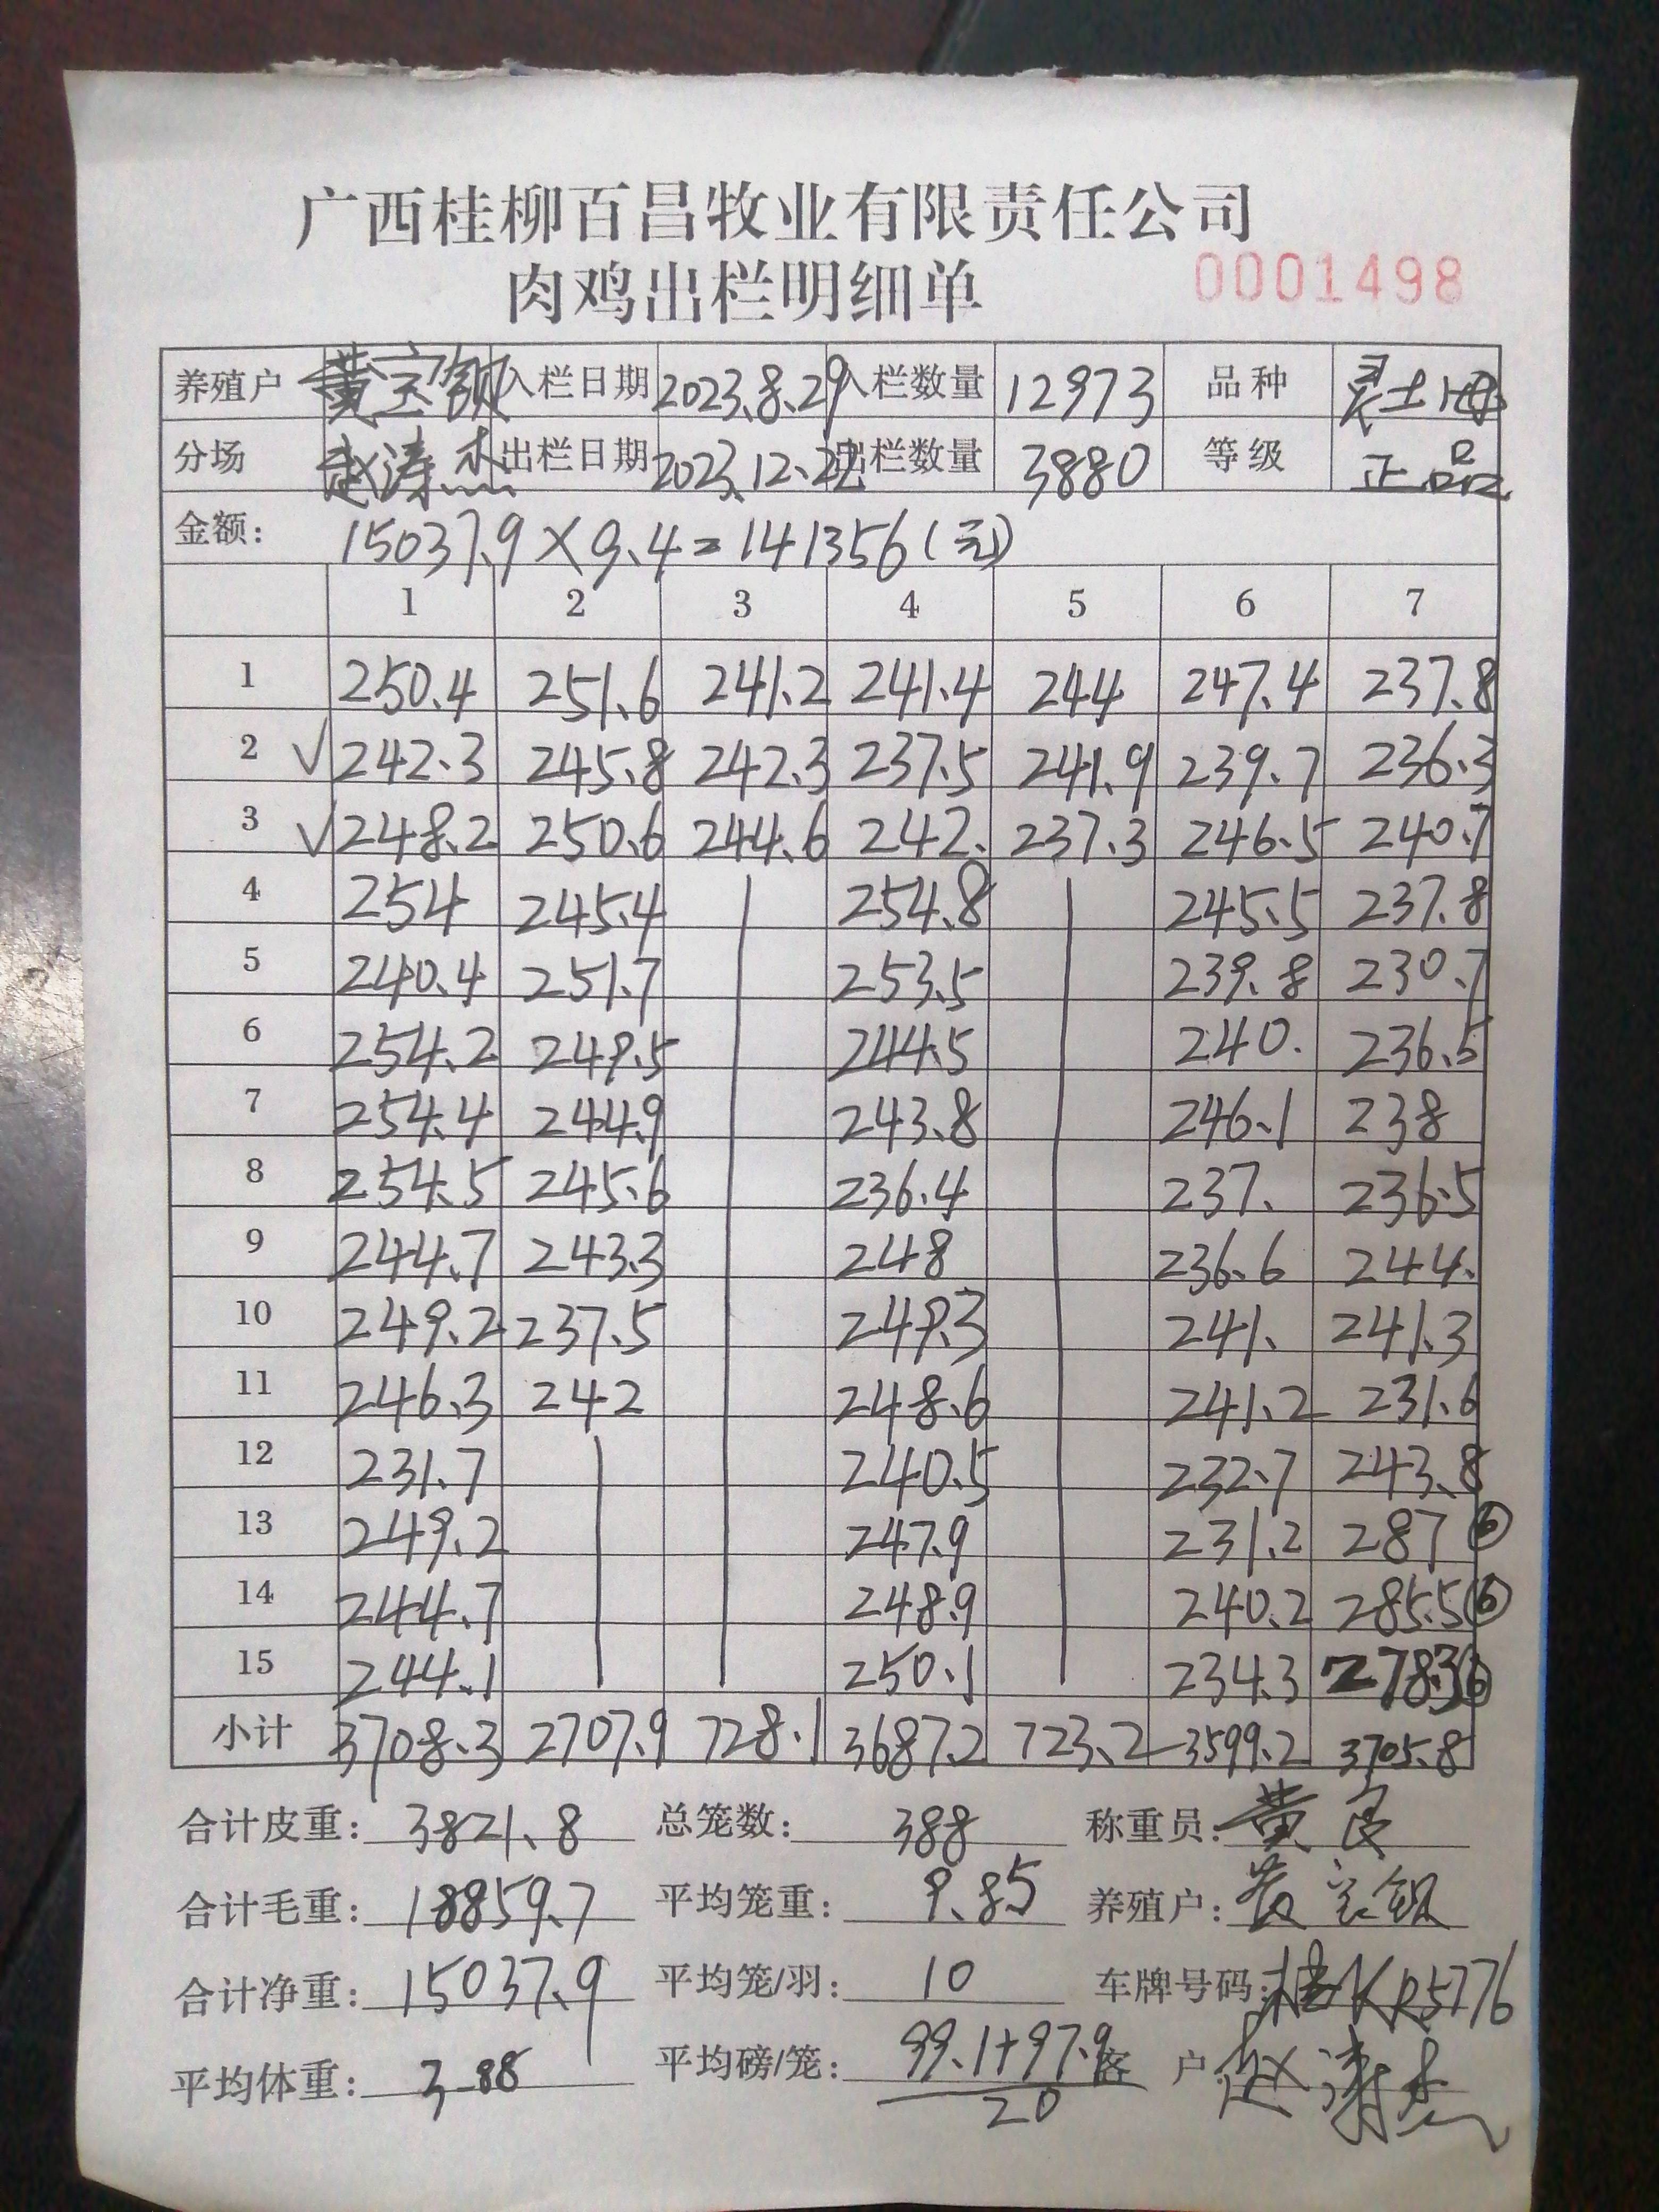 广西桂柳百昌牧业有限责任公司
肉鸡出栏明细单 0001498
养殖户 黄宝钦 入栏日期 2023.8.29 入栏数量 12973 品种 灵土母
分场 赵涛杰 出栏日期 2023.12.22 出栏数量 3880 等级 正品
金额: 15037.9×9.4=141356(元)
1 2 3 4 5 6 7
1 250.4 251.6 241.2 241.4 244 247.4 237.8
2 √ 242.3 245.8 242.3 237.5 241.9 239.7 236.3
3 √ 248.2 250.6 244.6 242. 237.3 246.5 240.7
4 254 245.4 254.8 245.5 237.8
5 240.4 251.7 253.5 239.8 230.7
6 254.2 249.5 244.5 240. 236.5
7 254.4 244.9 243.8 246.1 238
8 254.5 245.6 236.4 237. 236.5
9 244.7 243.3 248 236.6 244.
10 249.2 237.5 249.3 241. 241.3
11 246.3 242 248.6 241.2 231.6
12 231.7 240.5 232.7 243.8
13 249.2 247.9 231.2 287 ⑥
14 244.7 248.9 240.2 285.5 ⑥
15 244.1 250.1 234.3 278.3 ⑥
小计 3708.3 2707.9 728.1 3687.2 723.2 3599.2 3705.8
合计皮重: 3821.8 总笼数: 388 称重员: 黄良
合计毛重: 18859.7 平均笼重: 9.85 养殖户: 黄宝钦
合计净重: 15037.9 平均笼/羽: 10 车牌号码: 桂KR5776
平均体重: 3.88 平均磅/笼: 99.1+97.9 客 户 赵涛杰
20